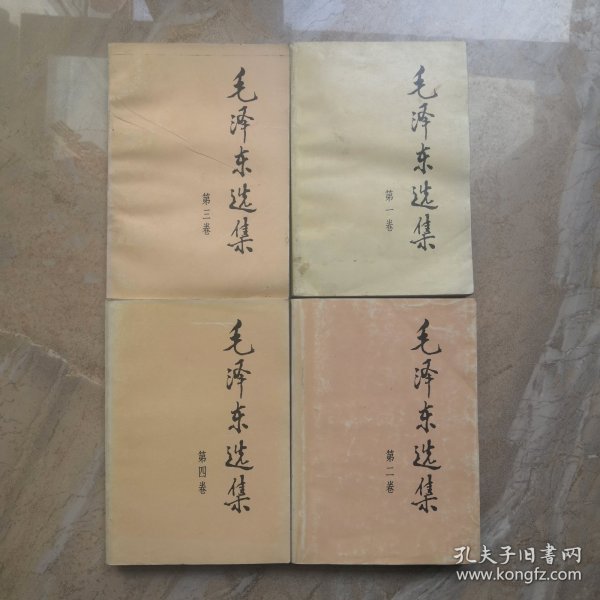 毛泽东选集
第三卷
毛泽东选集
第一卷
毛泽东选集
第四卷
毛泽东选集
第二卷
孔夫子旧书网
www.kongfz.com